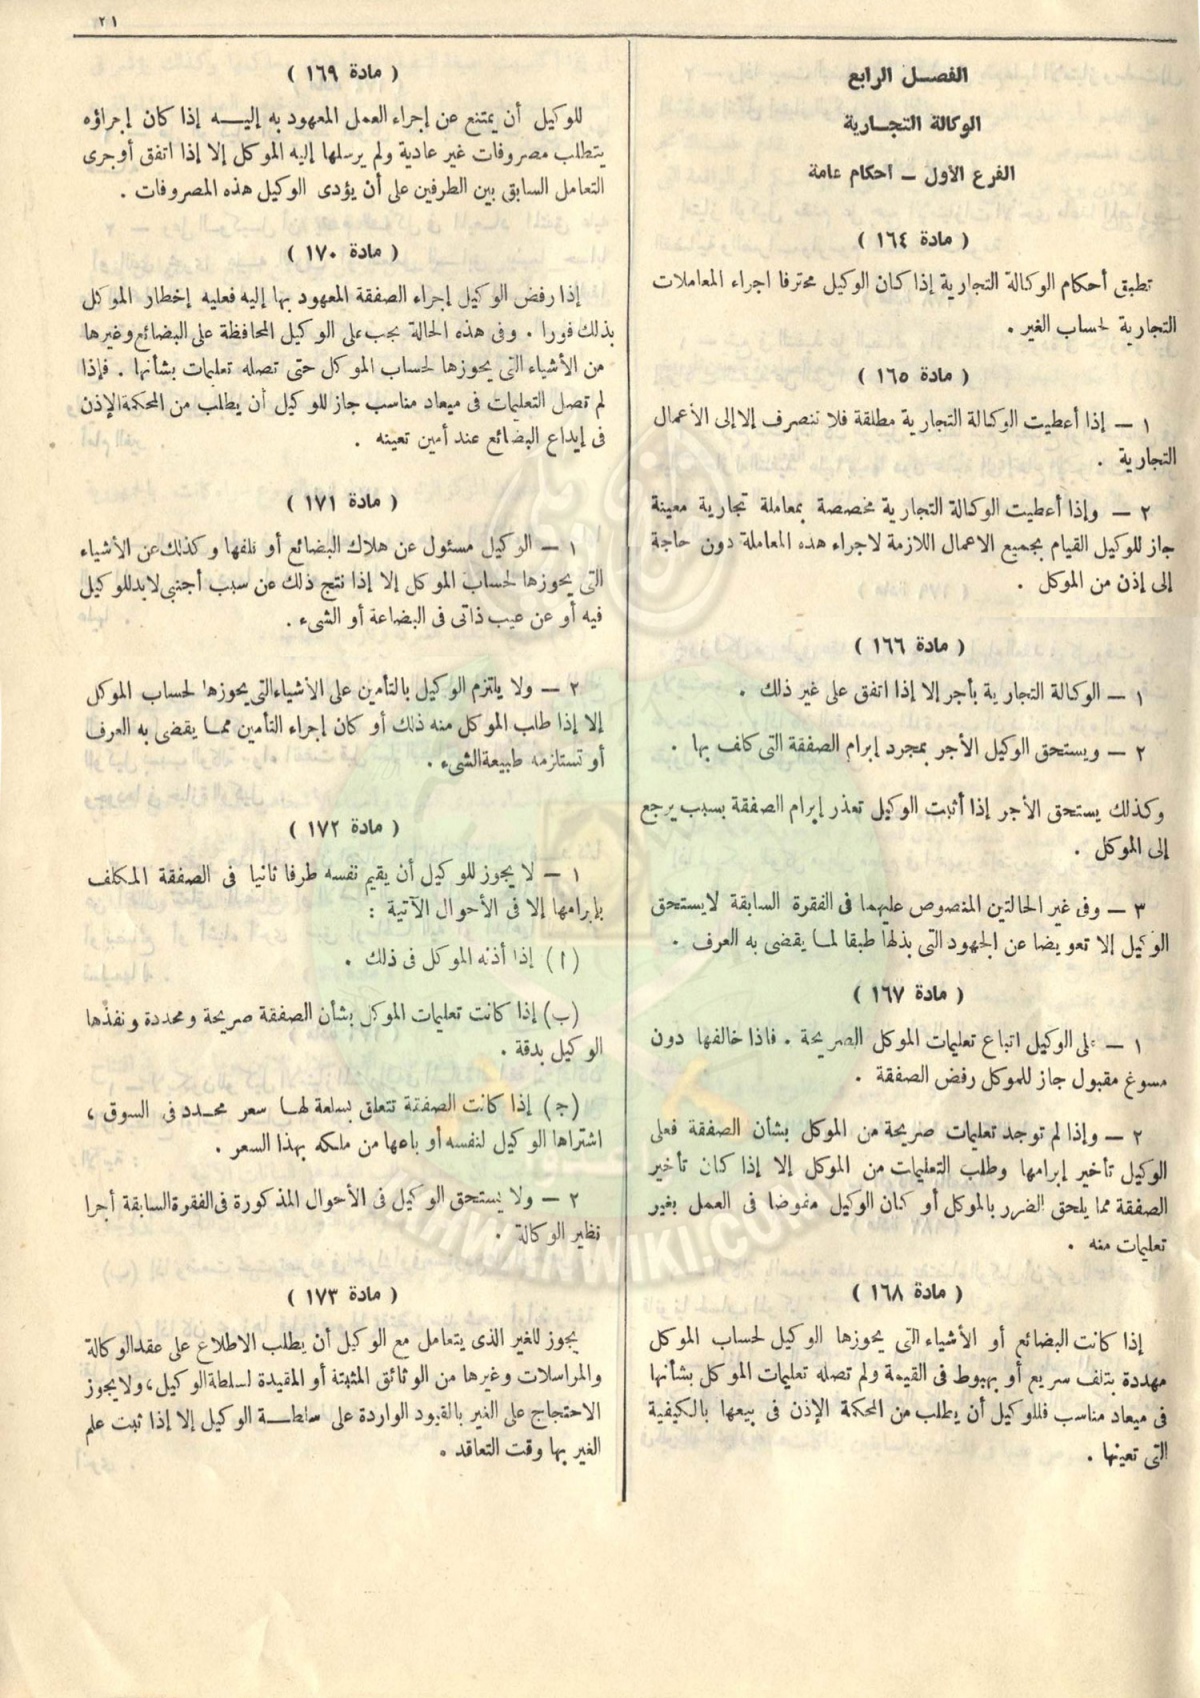 ٢١
الفصل الرابع
الوكالة التجارية
الفرع الأول – أحكام عامة
( مادة ١٦٤ )
تطبق أحكام الوكالة التجارية إذا كان الوكيل محترفا اجراء المعاملات
التجارية لحساب الغير .
( مادة ١٦٥ )
١ – إذا أعطيت الوكالة التجارية مطلقة فلا تنصرف إلا إلى الأعمال
التجارية .
٢ – وإذا أعطيت الوكالة التجارية مخصصة بمعاملة تجارية معينة
جاز للوكيل القيام بجميع الاعمال اللازمة لاجراء هذه المعاملة دون حاجة
إلى إذن من الموكل .
( مادة ١٦٦ )
١ – الوكالة التجارية بأجر إلا إذا اتفق على غير ذلك .
٢ – ويستحق الوكيل الأجر بمجرد إبرام الصفقة التى كلف بها .
وكذلك يستحق الأجر إذا أثبت الوكيل تعذر إبرام الصفقة بسبب يرجع
إلى الموكل .
٣ – وفى غير الحالتين المنصوص عليهما فى الفقرة السابقة لايستحق
الوكيل إلا تعويضا عن الجهود التى بذلها طبقا لما يقضى به العرف .
( مادة ١٦٧ )
١ – على الوكيل اتباع تعليمات الموكل الصريحة . فاذا خالفها دون
مسوغ مقبول جاز للموكل رفض الصفقة .
٢ – وإذا لم توجد تعليمات صريحة من الموكل بشأن الصفقة فعلى
الوكيل تأخير إبرامها وطلب التعليمات من الموكل إلا إذا كان تأخير
الصفقة مما يلحق الضرر بالموكل أو كان الوكيل مفوضا فى العمل بغير
تعليمات منه .
( مادة ١٦٨ )
إذا كانت البضائع أو الأشياء التى يحوزها الوكيل لحساب الموكل
مهددة بتلف سريع أو بهبوط فى القيمة ولم تصله تعليمات الموكل بشأنها
فى ميعاد مناسب فللوكيل أن يطلب من المحكمة الإذن فى بيعها بالكيفية
التى تعينها .
( مادة ١٦٩ )
للوكيل أن يمتنع عن إجراء العمل المعهود به إليه إذا كان إجراؤه
يتطلب مصروفات غير عادية ولم يرسلها إليه الموكل إلا إذا اتفق أوجرى
التعامل السابق بين الطرفين على أن يؤدى الوكيل هذه المصروفات .
( مادة ١٧٠ )
إذا رفض الوكيل إجراء الصفقة المعهود بها إليه فعليه إخطار الموكل
بذلك فورا . وفى هذه الحالة يجب على الوكيل المحافظة على البضائع وغيرها
من الأشياء التى يحوزها لحساب الموكل حتى تصله تعليمات بشأنها . فإذا
لم تصل التعليمات فى ميعاد مناسب جاز للوكيل أن يطلب من المحكمة الإذن
فى إيداع البضائع عند أمين تعينه .
( مادة ١٧١ )
١ – الوكيل مسئول عن هلاك البضائع أو تلفها وكذلك عن الأشياء
التى يحوزها لحساب الموكل إلا إذا نتج ذلك عن سبب أجنبى لابد للوكيل
فيه أو عن عيب ذاتى فى البضاعة أو الشىء .
٢ – ولا يلتزم الوكيل بالتأمين على الأشياء التى يحوزها لحساب الموكل
إلا إذا طلب الموكل منه ذلك أو كان إجراء التأمين مما يقضى به العرف
أو تستلزمه طبيعة الشىء .
( مادة ١٧٢ )
١ – لا يجوز للوكيل أن يقيم نفسه طرفا ثانيا فى الصفقة المكلف
بإبرامها إلا فى الأحوال الآتية :
(ا) إذا أذنه الموكل فى ذلك .
(ب) إذا كانت تعليمات الموكل بشأن الصفقة صريحة ومحددة ونفذها
الوكيل بدقة .
(ج) إذا كانت الصفقة تتعلق بسلعة لها سعر محدد فى السوق ،
اشتراها الوكيل لنفسه أو باعها من ملكه بهذا السعر .
٢ – ولا يستحق الوكيل فى الأحوال المذكورة فى الفقرة السابقة أجرا
نظير الوكالة .
( مادة ١٧٣ )
يجوز للغير الذى يتعامل مع الوكيل أن يطلب الاطلاع على عقد الوكالة
والمراسلات وغيرها من الوثائق المثبتة أو المقيدة لسلطة الوكيل، ولايجوز
الاحتجاج على الغير بالقيود الواردة على سلطة الوكيل إلا إذا ثبت علم
الغير بها وقت التعاقد .